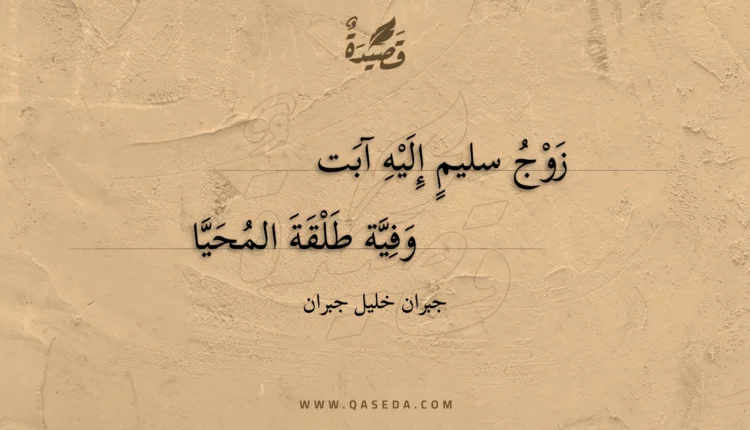 قَصِيْدَةٌ
زَوْجُ سليمٍ إِلَيْهِ آبَت
وَفِيَّة طَلْقَةَ المُحَيَّا
جبران خليل جبران
WWW.QASEDA.COM